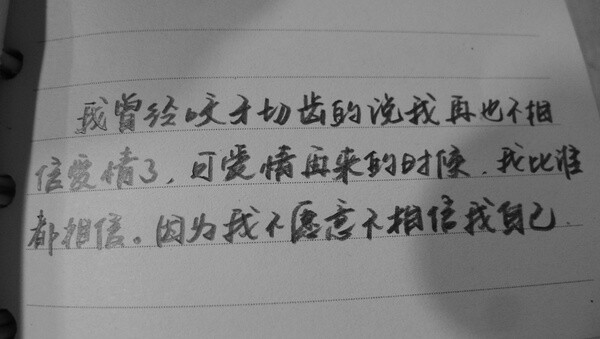 我曾经咬牙切齿的说我再也不相
信爱情了，可爱情再来的时候，我比谁
都相信。因为我不愿意不相信我自己.